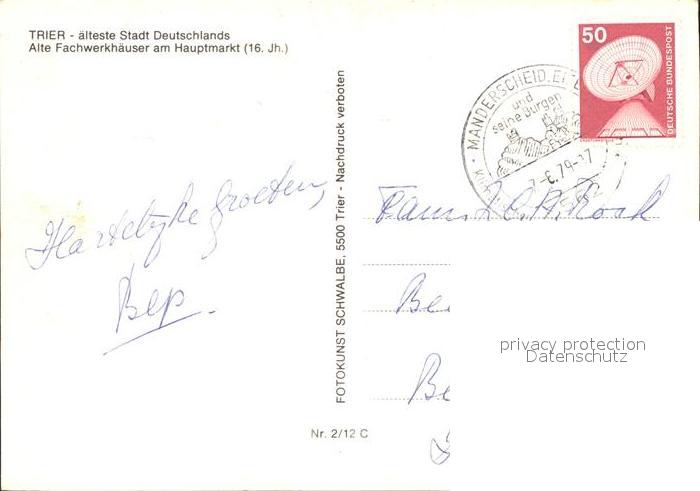 TRIER - älteste Stadt Deutschlands
Alte Fachwerkhäuser am Hauptmarkt (16. Jh.)
50
DEUTSCHE BUNDESPOST
MANDERSCHEID, EIFEL
und
seine Burgen
6.79-17
Hartelijke groeten,
Bep
Fam.
Be
Be
FOTOKUNST SCHWALBE, 5500 Trier - Nachdruck verboten
Nr. 2/12 C
privacy protection
Datenschutz